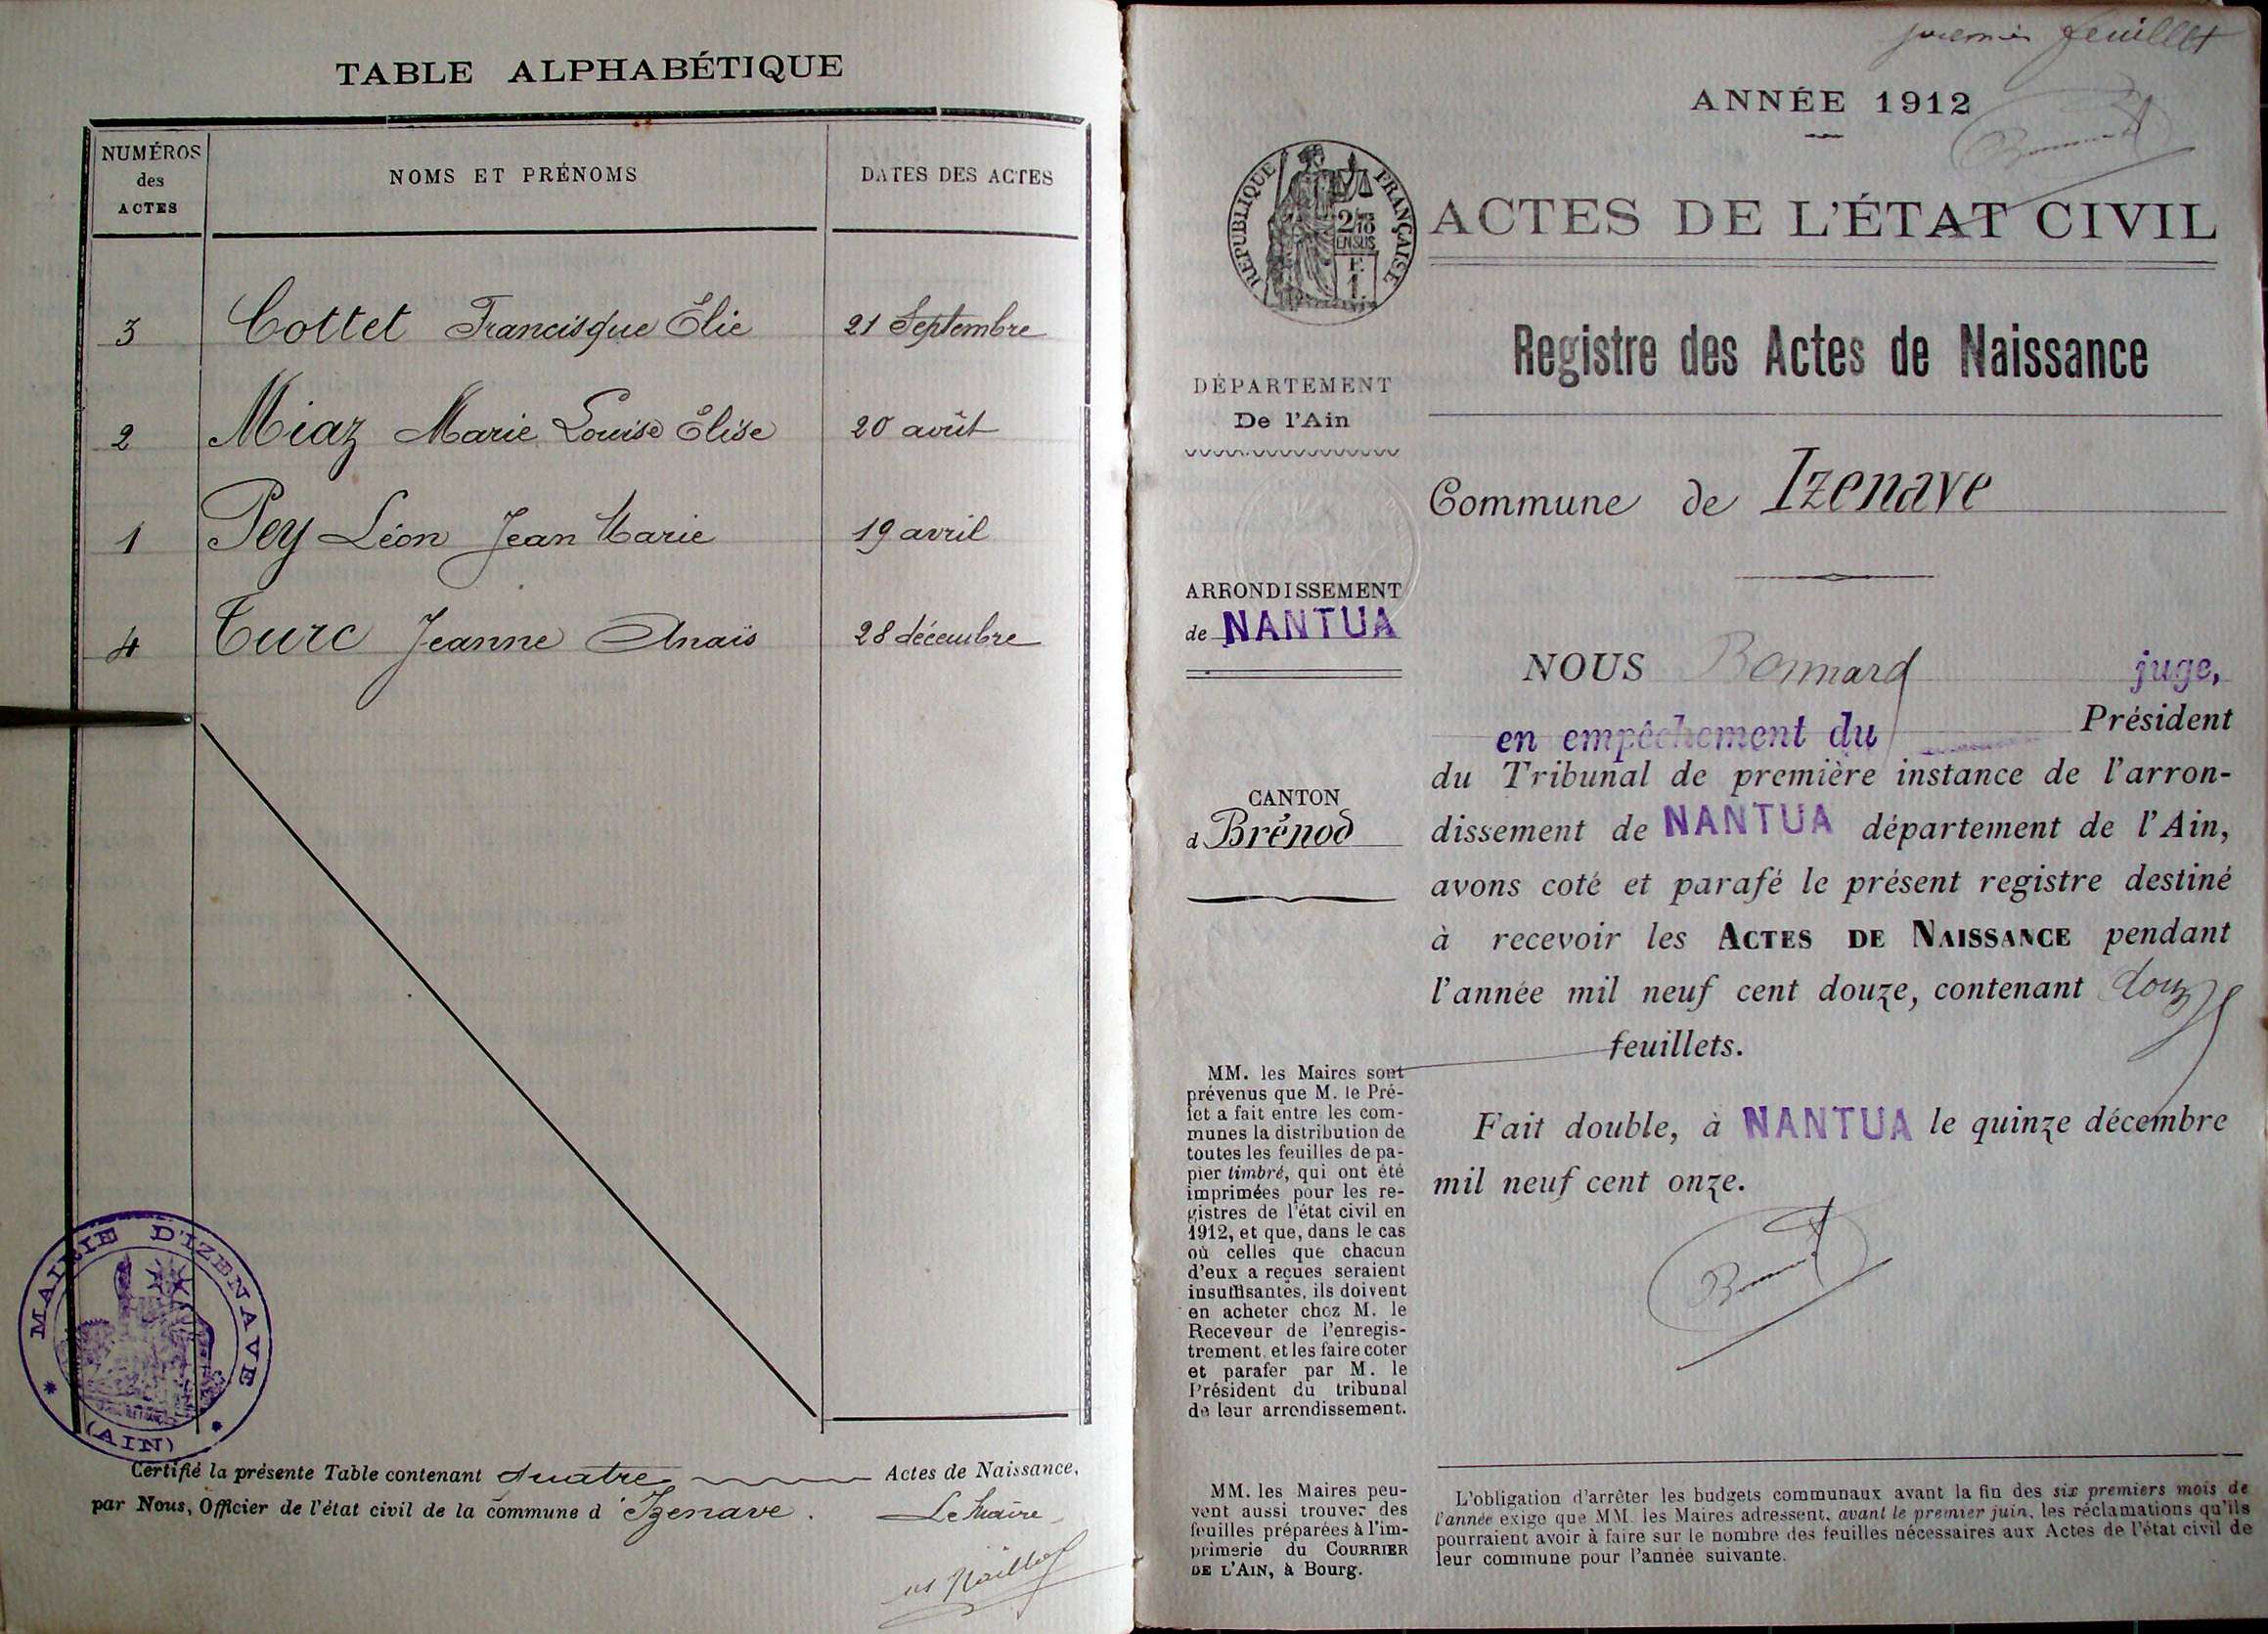 TABLE ALPHABÉTIQUE
NUMÉROS
des
ACTES
NOMS ET PRÉNOMS
DATES DES ACTES
3 Cottet Francisque Élie 21 Septembre
2 Miaz Marie Louise Élise 20 août
1 Pey Léon Jean Marie 19 avril
4 Turc Jeanne Anaïs 28 décembre
MAIRIE D'IZENAVE
(AIN)
Certifié la présente Table contenant quatre Actes de Naissance,
par Nous, Officier de l'état civil de la commune d'Izenave.
Le Maire
premier feuillet
ANNÉE 1912
RÉPUBLIQUE FRANÇAISE
2/10
EN SUS
ACTES DE L'ÉTAT CIVIL
Registre des Actes de Naissance
DÉPARTEMENT
De l'Ain
Commune de Izenave
ARRONDISSEMENT
de NANTUA
CANTON
d Brénod
NOUS Bonnard juge,
en empêchement du Président
du Tribunal de première instance de l'arron-
dissement de NANTUA département de l'Ain,
avons coté et parafé le présent registre destiné
à recevoir les ACTES DE NAISSANCE pendant
l'année mil neuf cent douze, contenant douze
feuillets.
Fait double, à NANTUA le quinze décembre
mil neuf cent onze.
MM. les Maires sont
prévenus que M. le Pré-
fet a fait entre les com-
munes la distribution de
toutes les feuilles de pa-
pier timbré, qui ont été
imprimées pour les re-
gistres de l'état civil en
1912, et que, dans le cas
où celles que chacun
d'eux a reçues seraient
insuffisantes, ils doivent
en acheter chez M. le
Receveur de l'enregis-
trement, et les faire coter
et parafer par M. le
Président du tribunal
de leur arrondissement.
MM. les Maires peu-
vent aussi trouver des
feuilles préparées à l'im-
primerie du COURRIER
DE L'AIN, à Bourg.
L'obligation d'arrêter les budgets communaux avant la fin des six premiers mois de
l'année exige que MM. les Maires adressent, avant le premier juin, les réclamations qu'ils
pourraient avoir à faire sur le nombre des feuilles nécessaires aux Actes de l'état civil de
leur commune pour l'année suivante.